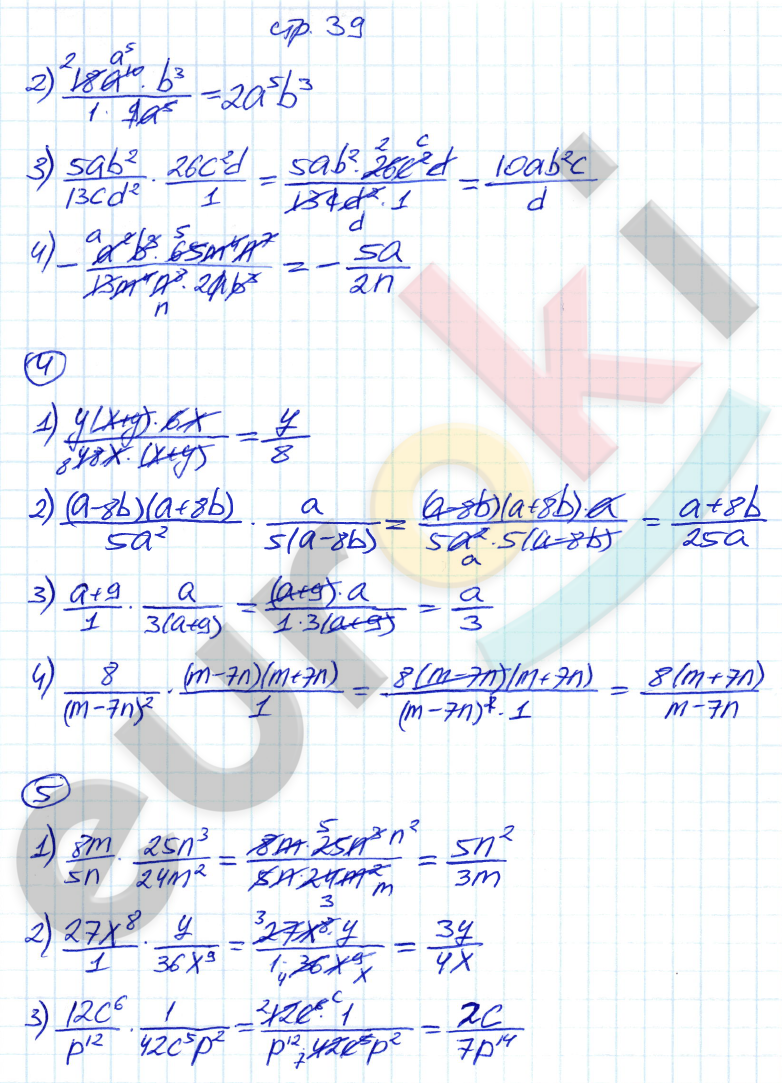 стр. 39
2) 18a¹⁰ · b³ / 1 · 9a⁵ = 2a⁵b³
3) 5ab² / 13cd² · 26c²d / 1 = 5ab² · 26c²d / 13cd² · 1 = 10ab²c / d
4) − a²b³ · 65m⁴n⁷ / 13m⁴n⁸ · 2ab³ = − 5a / 2n
4
1) y(x+y) · 6x / 48x · (x+y) = y / 8
2) (a−8b)(a+8b) / 5a² · a / 5(a−8b) = (a−8b)(a+8b) · a / 5a² · 5(a−8b) = a+8b / 25a
3) a+9 / 1 · a / 3(a+9) = (a+9) · a / 1 · 3(a+9) = a / 3
4) 8 / (m−7n)² · (m−7n)(m+7n) / 1 = 8(m−7n)(m+7n) / (m−7n)² · 1 = 8(m+7n) / m−7n
5
1) 8m / 5n · 25n³ / 24m² = 8m · 25n³ n² / 5n · 24m² m = 5n² / 3m
2) 27x⁸ / 1 · y / 36x⁹ = 27x⁸ · y / 1 · 36x⁹ = 3y / 4x
3) 12c⁶ / p¹² · 1 / 42c⁵p² = 12c⁶ · 1 / p¹² · 42c⁵p² = 2c / 7p¹⁴
euroki